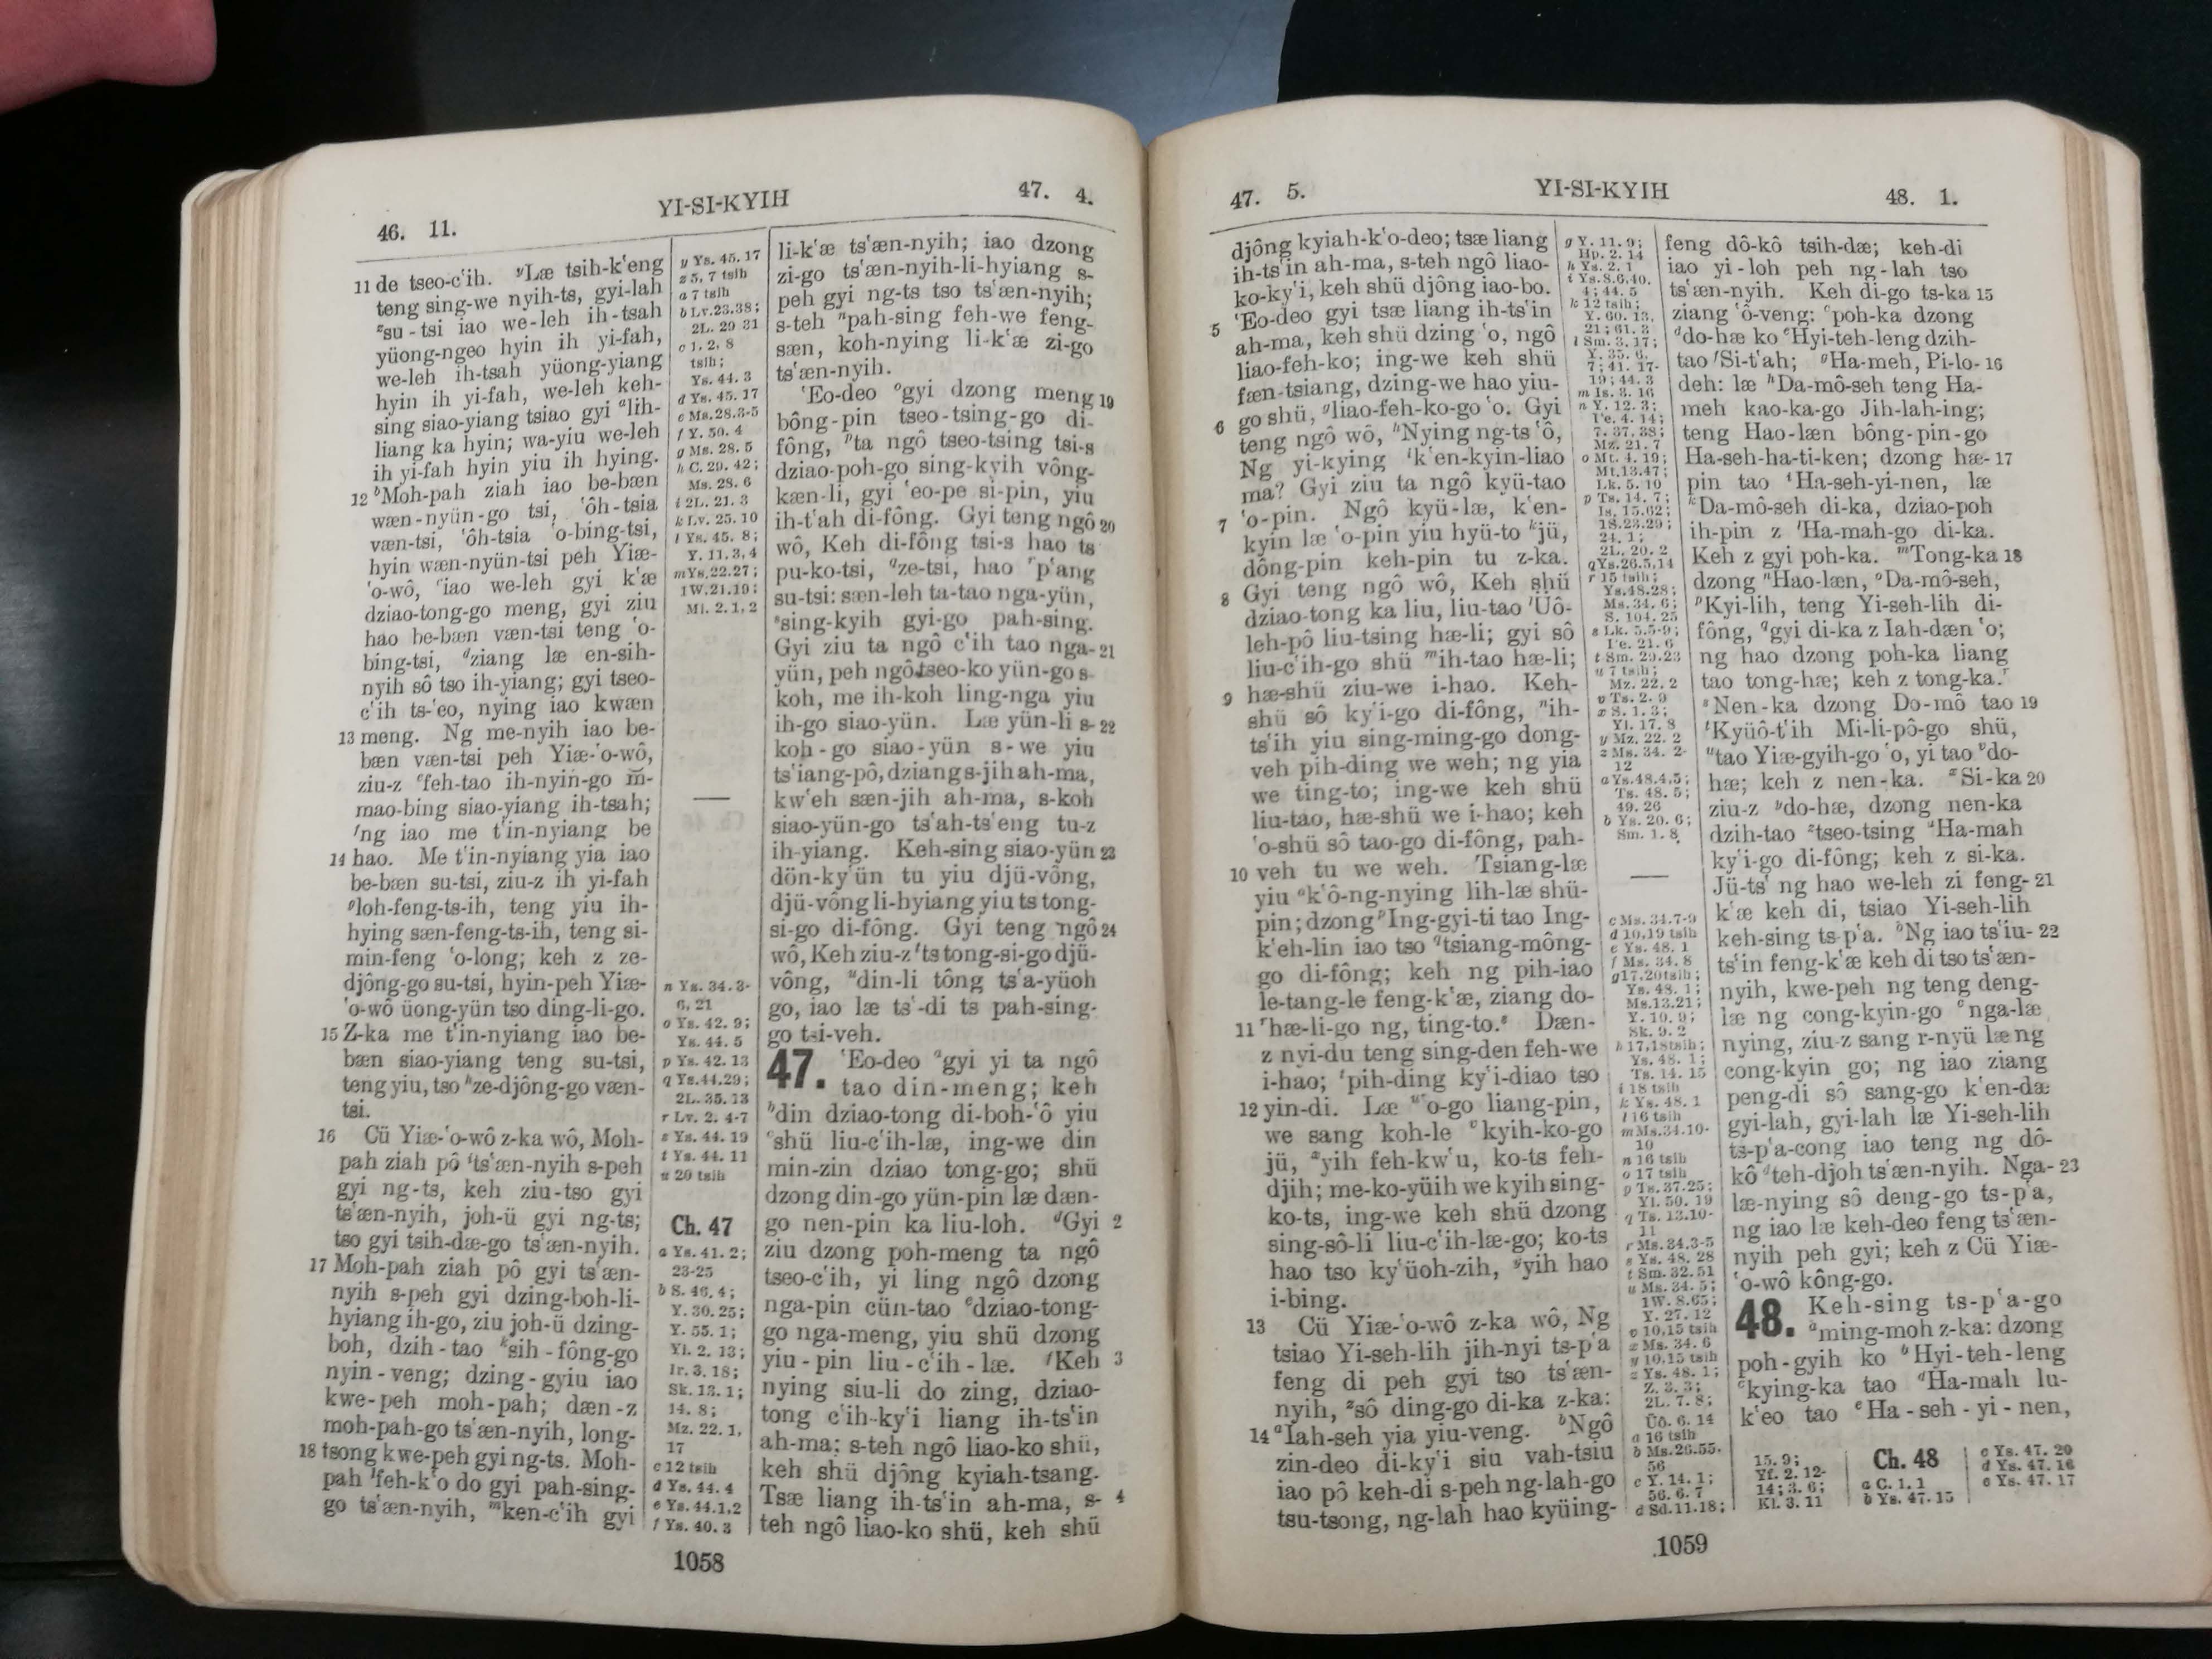 46. 11.
YI-SI-KYIH
47. 4.
11 de tseo-c‘ih. yLæ tsih-k‘eng
teng sing-we nyih-ts, gyi-lah
zsu-tsi iao we-leh ih-tsah
yüong-ngeo hyin ih yi-fah,
we-leh ih-tsah yüong-yiang
hyin ih yi-fah, we-leh keh-
sing siao-yiang tsiao gyi alih-
liang ka hyin; wa-yiu we-leh
ih yi-fah hyin yiu ih hying.
12 bMoh-pah ziah iao be-bæn
wæn-nyün-go tsi, ‘ôh-tsia
væn-tsi, ‘ôh-tsia ‘o-bing-tsi,
hyin wæn-nyün-tsi peh Yiæ-
‘o-wô, ciao we-leh gyi k‘æ
dziao-tong-go meng, gyi ziu
hao be-bæn væn-tsi teng ‘o-
bing-tsi, dziang læ en-sih-
nyih sô tso ih-yiang; gyi tseo-
c‘ih ts-‘eo, nying iao kwæn
13 meng. Ng me-nyih iao be-
bæn væn-tsi peh Yiæ-‘o-wô,
ziu-z efeh-tao ih-nyin-go m̄-
mao-bing siao-yiang ih-tsah;
fng iao me t‘in-nyiang be
14 hao. Me t‘in-nyiang yia iao
be-bæn su-tsi, ziu-z ih yi-fah
gloh-feng-ts-ih, teng yiu ih-
hying sæn-feng-ts-ih, teng si-
min-feng ‘o-long; keh z ze-
djông-go su-tsi, hyin-peh Yiæ-
‘o-wô üong-yün tso ding-li-go.
15 Z-ka me t‘in-nyiang iao be-
bæn siao-yiang teng su-tsi,
teng yiu, tso hze-djông-go væn-
tsi.
16 Cü Yiæ-‘o-wô z-ka wô, Moh-
pah ziah pô its‘æn-nyih s-peh
gyi ng-ts, keh ziu-tso gyi
ts‘æn-nyih, joh-ü gyi ng-ts;
tso gyi tsih-dæ-go ts‘æn-nyih.
17 Moh-pah ziah pô gyi ts‘æn-
nyih s-peh gyi dzing-boh-li-
hyiang ih-go, ziu joh-ü dzing-
boh, dzih-tao ksih-fông-go
nyin-veng; dzing-gyiu iao
kwe-peh moh-pah; dæn-z
moh-pah-go ts‘æn-nyih, long-
18 tsong kwe-peh gyi ng-ts. Moh-
pah lfeh-k‘o do gyi pah-sing-
go ts‘æn-nyih, mken-c‘ih gyi
y Ys. 45. 17
z 5, 7 tsih
a 7 tsih
b Lv.23.38;
2L. 29 31
c 1, 2, 8
tsih;
Ys. 44. 3
d Ys. 45. 17
e Ms.28.3-5
f Y. 50. 4
g Ms. 28. 5
h C. 29. 42;
Ms. 28. 6
i 2L. 21. 3
k Lv. 25. 10
l Ys. 45. 8;
Y. 11.3,4
m Ys.22.27;
1W.21.19;
Mi. 2. 1, 2
n Ys. 34. 3-
6, 21
o Ys. 42. 9;
Ys. 44. 5
p Ys. 42. 13
q Ys.44.29;
2L. 35. 13
r Lv. 2. 4-7
s Ys. 44. 19
t Ys. 44. 11
u 20 tsih
Ch. 47
a Ys. 41. 2;
23-25
b S. 46. 4;
Y. 30. 25;
Y. 55. 1;
Yl. 2. 13;
Ir. 3. 18;
Sk. 13. 1;
14. 8;
Mz. 22. 1,
17
c 12 tsih
d Ys. 44. 4
e Ys. 44.1,2
f Ys. 40. 3
li-k‘æ ts‘æn-nyih; iao dzong
zi-go ts‘æn-nyih-li-hyiang s-
peh gyi ng-ts tso ts‘æn-nyih;
s-teh npah-sing feh-we feng-
sæn, koh-nying li-k‘æ zi-go
ts‘æn-nyih.
‘Eo-deo ogyi dzong meng 19
bông-pin tseo-tsing-go di-
fông, pta ngô tseo-tsing tsi-s
dziao-poh-go sing-kyih vông-
kæn-li, gyi ‘eo-pe si-pin, yiu
ih-t‘ah di-fông. Gyi teng ngô 20
wô, Keh di-fông tsi-s hao ts
pu-ko-tsi, qze-tsi, hao rp‘ang
su-tsi: sæn-leh ta-tao nga-yün,
ssing-kyih gyi-go pah-sing.
Gyi ziu ta ngô c‘ih tao nga- 21
yün, peh ngô tseo-ko yün-go s-
koh, me ih-koh ling-nga yiu
ih-go siao-yün. Læ yün-li s- 22
koh-go siao-yün s-we yiu
ts‘iang-pô, dziang s-jih ah-ma,
kw‘eh sæn-jih ah-ma, s-koh
siao-yün-go ts‘ah-ts‘eng tu-z
ih-yiang. Keh-sing siao-yün 23
dön-ky‘ün tu yiu djü-vông,
djü-vông li-hyiang yiu ts tong-
si-go di-fông. Gyi teng ngô 24
wô, Keh ziu-z tts tong-si-go djü-
vông, udin-li tông ts‘a-yüoh
go, iao læ ts‘-di ts pah-sing-
go tsi-veh.
47. ‘Eo-deo agyi yi ta ngô
tao din-meng; keh
bdin dziao-tong di-boh-‘ô yiu
cshü liu-c‘ih-læ, ing-we din
min-zin dziao tong-go; shü
dzong din-go yün-pin læ dæn-
go nen-pin ka liu-loh. dGyi 2
ziu dzong poh-meng ta ngô
tseo-c‘ih, yi ling ngô dzong
nga-pin cün-tao edziao-tong-
go nga-meng, yiu shü dzong
yiu-pin liu-c‘ih-læ. fKeh 3
nying siu-li do zing, dziao-
tong c‘ih-ky‘i liang ih-ts‘in
ah-ma; s-teh ngô liao-ko shü,
keh shü djông kyiah-tsang.
Tsæ liang ih-ts‘in ah-ma, s- 4
teh ngô liao-ko shü, keh shü
1058
47. 5.
YI-SI-KYIH
48. 1.
djông kyiah-k‘o-deo; tsæ liang
ih-ts‘in ah-ma, s-teh ngô liao-
ko-ky‘i, keh shü djông iao-bo.
5 ‘Eo-deo gyi tsæ liang ih-ts‘in
ah-ma, keh shü dzing ‘o, ngô
liao-feh-ko; ing-we keh shü
fæn-tsiang, dzing-we hao yiu-
go shü, gliao-feh-ko-go ‘o. Gyi
6 teng ngô wô, hNying ng-ts ‘ô,
Ng yi-kying ik‘en-kyin-liao
ma? Gyi ziu ta ngô kyü-tao
7 ‘o-pin. Ngô kyü-læ, k‘en-
kyin læ ‘o-pin yiu hyü-to kjü,
dông-pin keh-pin tu z-ka.
8 Gyi teng ngô wô, Keh shü
dziao-tong ka liu, liu-tao lÜô-
leh-pô liu-tsing hæ-li; gyi sô
liu-c‘ih-go shü mih-tao hæ-li;
9 hæ-shü ziu-we i-hao. Keh-
shü sô ky‘i-go di-fông, nih-
ts‘ih yiu sing-ming-go dong-
veh pih-ding we weh; ng yia
we ting-to; ing-we keh shü
liu-tao, hæ-shü we i-hao; keh
‘o-shü sô tao-go di-fông, pah-
10 veh tu we weh. Tsiang-læ
yiu ok‘ô-ng-nying lih-læ shü-
pin; dzong pIng-gyi-ti tao Ing-
k‘eh-lin iao tso qtsiang-mông-
go di-fông; keh ng pih-iao
le-tang-le feng-k‘æ, ziang do-
11 rhæ-li-go ng, ting-to.s Dæn-
z nyi-du teng sing-den feh-we
i-hao; tpih-ding ky‘i-diao tso
12 yin-di. Læ u‘o-go liang-pin,
we sang koh-le vkyih-ko-go
jü, xyih feh-kw‘u, ko-ts feh-
djih; me-ko-yüih we kyih sing-
ko-ts, ing-we keh shü dzong
sing-sô-li liu-c‘ih-læ-go; ko-ts
hao tso ky‘üoh-zih, yyih hao
i-bing.
13 Cü Yiæ-‘o-wô z-ka wô, Ng
tsiao Yi-seh-lih jih-nyi ts-p‘a
feng di peh gyi tso ts‘æn-
nyih, zsô ding-go di-ka z-ka:
14 aIah-seh yia yiu-veng. bNgô
zin-deo di-ky‘i siu vah-tsiu
iao pô keh-di s-peh ng-lah-go
tsu-tsong, ng-lah hao kyüing-
g Y. 11. 9;
Hp. 2. 14
h Ys. 2. 1
i Ys.8.6,40.
4; 44. 5
k 12 tsih;
Y. 60. 13,
21; 61. 3
l Sm. 3. 17;
Y. 35. 6,
7; 41. 17-
19; 44. 3
m Is. 3. 16
n Y. 12. 3;
Mz. 21. 7
o Mt. 4. 19;
Mt.13.47;
Lk. 5. 10
p Ts. 14. 7;
Is. 15.62;
1S.23.29;
24. 1;
2L. 20. 2
q Ys.26.5,14
r 15 tsih;
Ys.48.28;
Ms. 34. 6;
S. 104. 25
s Lk. 5.5-9;
t Sm. 29.23
u 7 tsih;
Mz. 22. 2
v Ts. 2. 9
x S. 1. 3;
Yl. 17. 8
y Mz. 22. 2
z Ms. 34. 2-
12
a Ys.48.4,5;
Ts. 48. 5;
49. 26
b Ys. 20. 6;
Sm. 1. 8
c Ms. 34.7-9
d 10,19 tsih
e Ys. 48. 1
f Ms. 34. 8
g 17,20tsih;
Ys. 48. 1;
Ms.13.21;
Y. 10. 9;
Sk. 9. 2
h 17,18tsih;
Ys. 48. 1;
Ts. 14. 15
i 18 tsih
k Ys. 48. 1
l 16 tsih
m Ms.34.10-
n 16 tsih
o 17 tsih
p Ts.37.25;
Yl. 50. 19
q Ts. 13.10-
11
r Ms.34.3-5
s Ys. 48. 28
t Sm. 32. 51
u Ms. 34. 5;
1W. 8.65;
Y. 27. 12
v 10,15 tsih
x Ms. 34. 6
y 10,15 tsih
z Ys. 48. 1;
Z. 3. 3;
2L. 7. 8;
Üô. 6. 14
a 16 tsih
b Ms.26.55-
56
c Y. 14. 1;
56. 6, 7
d Sd.11.18;
feng dô-kô tsih-dæ; keh-di
iao yi-loh peh ng-lah tso
ts‘æn-nyih. Keh di-go ts-ka 15
ziang ‘ô-veng: cpoh-ka dzong
ddo-hæ ko eHyi-teh-leng dzih-
tao fSi-t‘ah; gHa-meh, Pi-lo- 16
deh: læ hDa-mô-seh teng Ha-
meh kao-ka-go Jih-lah-ing;
teng Hao-læn bông-pin-go
Ha-seh-ha-ti-ken; dzong hæ- 17
pin tao iHa-seh-yi-nen, læ
kDa-mô-seh di-ka, dziao-poh
ih-pin z lHa-mah-go di-ka.
Keh z gyi poh-ka. mTong-ka 18
dzong nHao-læn, oDa-mô-seh,
pKyi-lih, teng Yi-seh-lih di-
fông, qgyi di-ka z Iah-dæn ‘o;
ng hao dzong poh-ka liang
tao tong-hæ; keh z tong-ka.r
sNen-ka dzong Do-mô tao 19
tKyüô-t‘ih Mi-li-pô-go shü,
utao Yiæ-gyih-go ‘o, yi tao vdo-
hæ; keh z nen-ka. xSi-ka 20
ziu-z ydo-hæ, dzong nen-ka
dzih-tao ztseo-tsing aHa-mah
ky‘i-go di-fông; keh z si-ka.
Jü-ts‘ ng hao we-leh zi feng- 21
k‘æ keh di, tsiao Yi-seh-lih
keh-sing ts-p‘a. bNg iao ts‘iu- 22
ts‘in feng-k‘æ keh di tso ts‘æn-
nyih, kwe-peh ng teng deng-
læ ng cong-kyin-go cnga-læ
nying, ziu-z sang r-nyü læ ng
cong-kyin go; ng iao ziang
peng-di sô sang-go k‘en-dæ
gyi-lah, gyi-lah læ Yi-seh-lih
ts-p‘a-cong iao teng ng dô-
kô dteh-djoh ts‘æn-nyih. Nga- 23
læ-nying sô deng-go ts-p‘a,
ng iao læ keh-deo feng ts‘æn-
nyih peh gyi; keh z Cü Yiæ-
‘o-wô kông-go.
48. Keh-sing ts-p‘a-go
aming-moh z-ka: dzong
poh-gyih ko bHyi-teh-leng
ckying-ka tao dHa-mah lu-
k‘eo tao eHa-seh-yi-nen,
15. 9;
Yf. 2. 12-
14; 3. 6;
Kl. 3. 11
Ch. 48
a C. 1. 1
b Ys. 47. 15
c Ys. 47. 20
d Ys. 47. 16
e Ys. 47. 17
1059